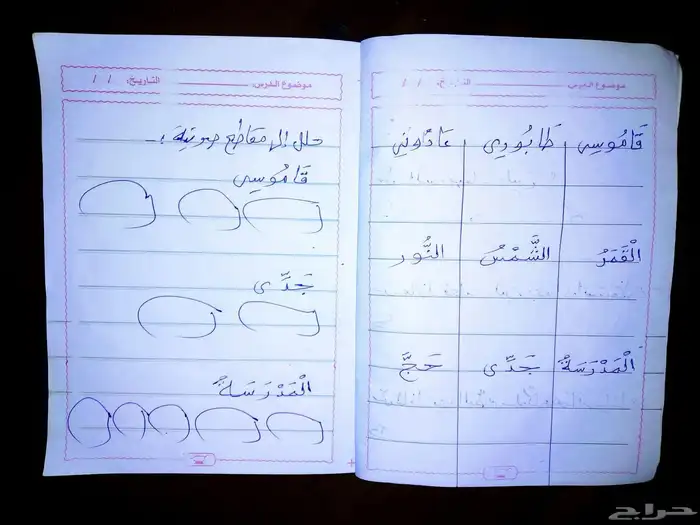 موضوع الدرس: التاريخ: / /
قَامُوسِي طَابُورِي
الْقَمَرُ الشَّمْسُ النُّور
الْمَدْرَسَةُ جَدِّى حَجَّ
موضوع الدرس: التاريخ: / /
حلل إلى مقاطع صوتية :-
قَامُوسِى
جَدِّى
الْمَدْرَسَةُ
حراج